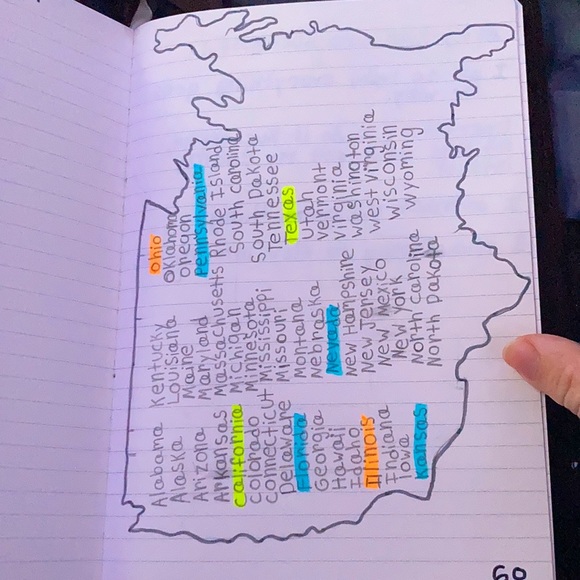 Alabama
Alaska
Arizona
Arkansas
California
Colorado
Connecticut
Delaware
Florida
Georgia
Hawaii
Idaho
Illinois
Indiana
Iowa
Kansas
Kentucky
Louisiana
Maine
Maryland
Massachusetts
Michigan
Minnesota
Mississippi
Missouri
Montana
Nebraska
Nevada
New Hampshire
New Jersey
New Mexico
New York
North Carolina
North Dakota
Ohio
Oklahoma
Oregon
Pennsylvania
Rhode Island
South carolina
South Dakota
Tennessee
Texas
Utah
Vermont
Virginia
Washington
West Virginia
Wisconsin
Wyoming